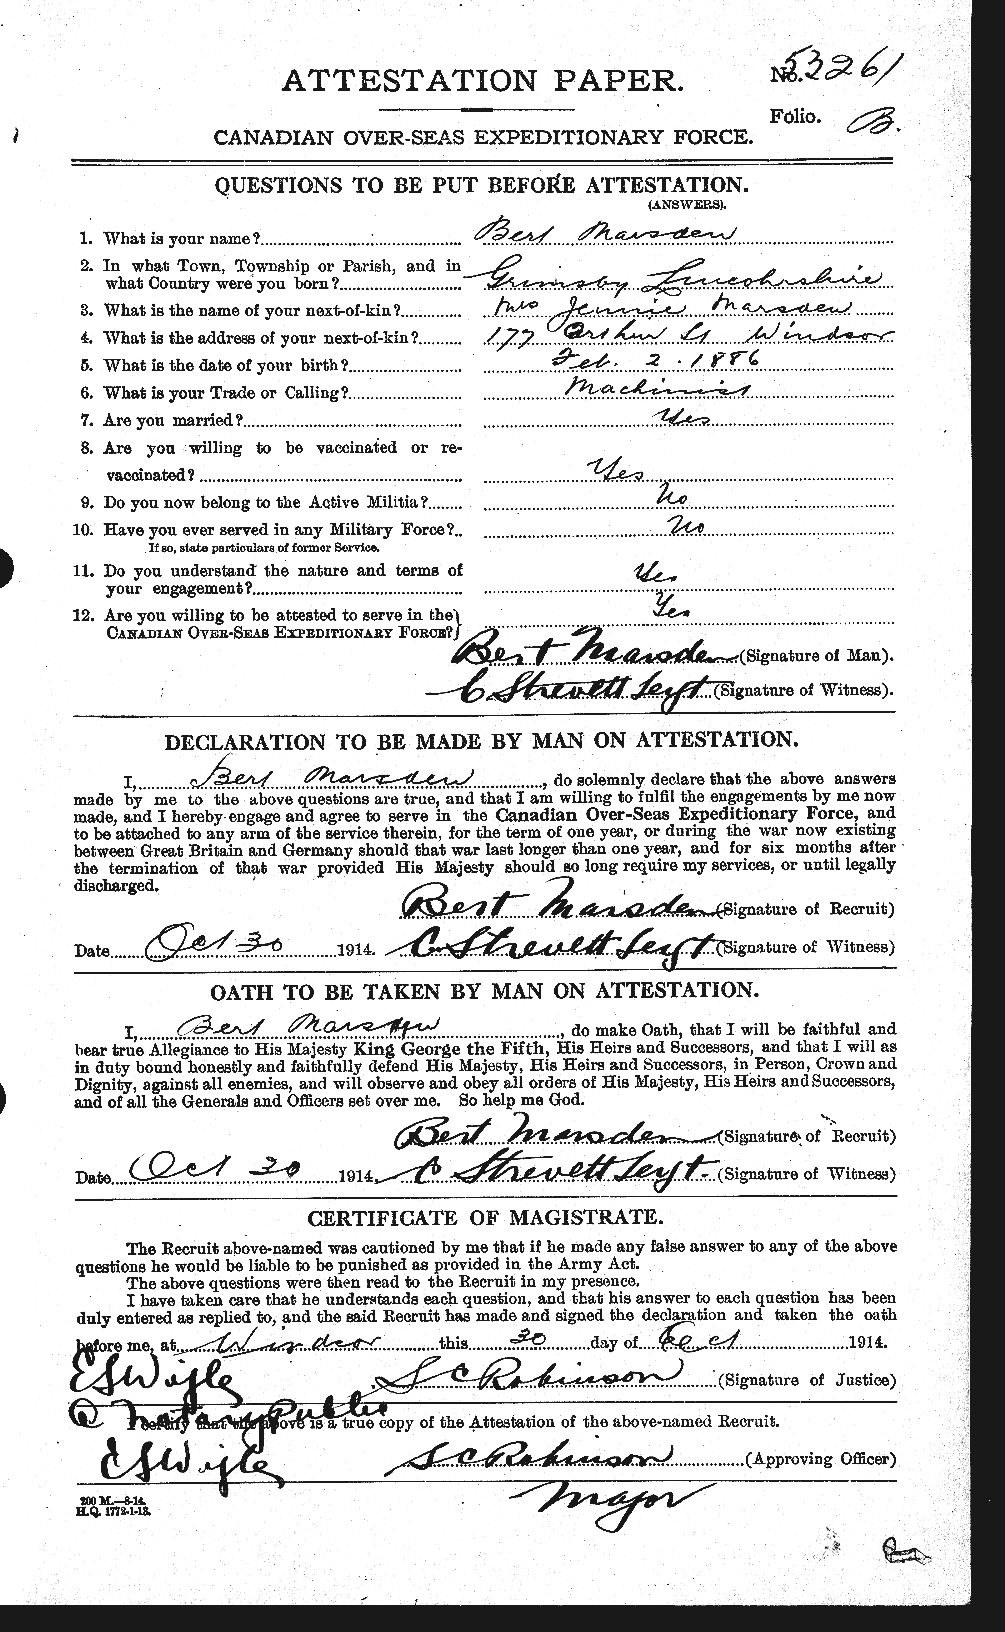 No. 53261
ATTESTATION PAPER.
Folio. B.
CANADIAN OVER-SEAS EXPEDITIONARY FORCE.
QUESTIONS TO BE PUT BEFORE ATTESTATION.
(ANSWERS).
1. What is your name? Bert Marsden
2. In what Town, Township or Parish, and in
what Country were you born? Grimsby Lincolnshire
3. What is the name of your next-of-kin? Mrs Jennie Marsden
4. What is the address of your next-of-kin? 177 Arthur St Windsor
5. What is the date of your birth? Feb. 2. 1886
6. What is your Trade or Calling? Machinist
7. Are you married? Yes
8. Are you willing to be vaccinated or re-
vaccinated? Yes
9. Do you now belong to the Active Militia? No
10. Have you ever served in any Military Force? No
If so, state particulars of former Service.
11. Do you understand the nature and terms of
your engagement? Yes
12. Are you willing to be attested to serve in the
CANADIAN OVER-SEAS EXPEDITIONARY FORCE? Yes
Bert Marsden (Signature of Man).
C. Strevett Seyt (Signature of Witness).
DECLARATION TO BE MADE BY MAN ON ATTESTATION.
I, Bert Marsden, do solemnly declare that the above answers
made by me to the above questions are true, and that I am willing to fulfil the engagements by me now
made, and I hereby engage and agree to serve in the Canadian Over-Seas Expeditionary Force, and
to be attached to any arm of the service therein, for the term of one year, or during the war now existing
between Great Britain and Germany should that war last longer than one year, and for six months after
the termination of that war provided His Majesty should so long require my services, or until legally
discharged.
Bert Marsden (Signature of Recruit)
Date Oct 30 1914. C. Strevett Seyt (Signature of Witness)
OATH TO BE TAKEN BY MAN ON ATTESTATION.
I, Bert Marsden, do make Oath, that I will be faithful and
bear true Allegiance to His Majesty King George the Fifth, His Heirs and Successors, and that I will as
in duty bound honestly and faithfully defend His Majesty, His Heirs and Successors, in Person, Crown and
Dignity, against all enemies, and will observe and obey all orders of His Majesty, His Heirs and Successors,
and of all the Generals and Officers set over me. So help me God.
Bert Marsden (Signature of Recruit)
Date Oct 30 1914. C Strevett Seyt. (Signature of Witness)
CERTIFICATE OF MAGISTRATE.
The Recruit above-named was cautioned by me that if he made any false answer to any of the above
questions he would be liable to be punished as provided in the Army Act.
The above questions were then read to the Recruit in my presence.
I have taken care that he understands each question, and that his answer to each question has been
duly entered as replied to, and the said Recruit has made and signed the declaration and taken the oath
before me, at Windsor this 30 day of Oct 1914.
E S Wigle S C Robinson (Signature of Justice)
a Notary Public
I certify that the above is a true copy of the Attestation of the above-named Recruit.
E S Wigle S C Robinson (Approving Officer)
Major
200 M.—8-14.
H.Q. 1772-1-13.